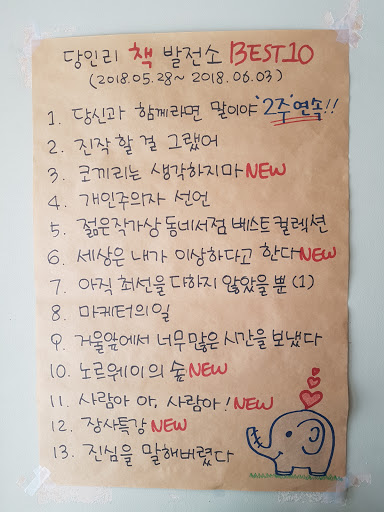 당인리 책 발전소 BEST10
(2018.05.28~ 2018.06.03)
1. 당신과 함께라면 말이야 '2주'연속!!
2. 진작 할 걸 그랬어
3. 코끼리는 생각하지마 NEW
4. 개인주의자 선언
5. 젊은작가상 동네서점 베스트 컬렉션
6. 세상은 내가 이상하다고 한다 NEW
7. 아직 최선을 다하지 않았을 뿐 (1)
8. 마케터의 일
9. 거울앞에서 너무 많은 시간을 보냈다
10. 노르웨이의 숲 NEW
11. 사람아 아, 사람아! NEW
12. 장사특강 NEW
13. 진심을 말해버렸다